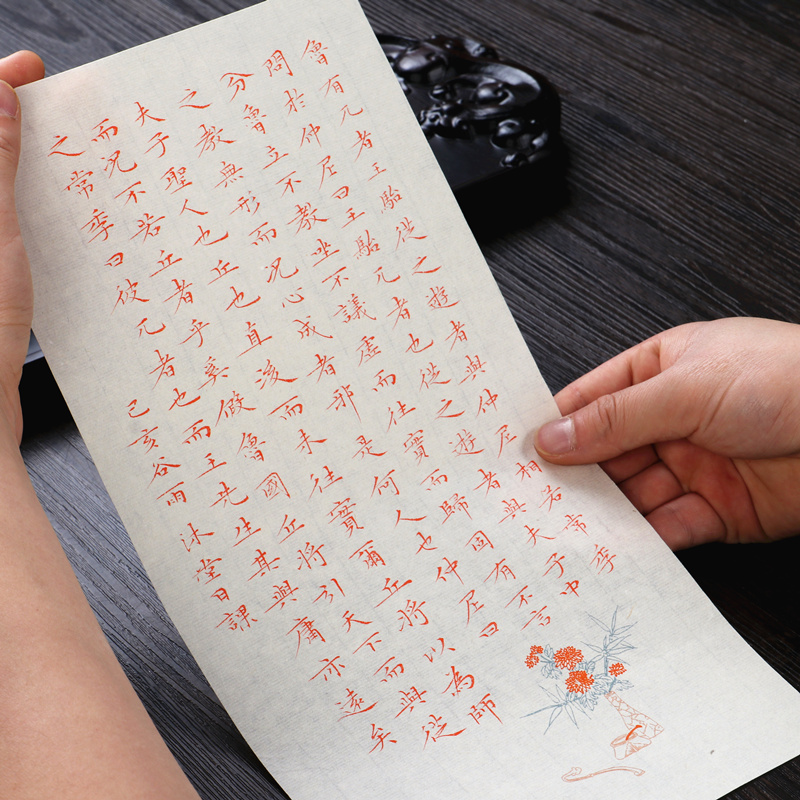 魯有兀者王駘從之遊者與仲尼相若常季
問於仲尼曰王駘兀者也從之遊者與夫子中
分魯立不教坐不議虛而往實而歸固有不言
之教無形而况心成者邪是何人也仲尼曰
夫子聖人也丘也直後而未往實爾丘將以為師
而况不若丘者乎奚假魯國丘將引天下而與從
之常季曰彼兀者也而王先生其與庸亦遠矣
己亥谷雨沐堂日課